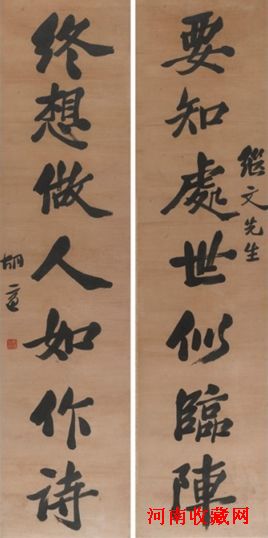 要知處世似臨陣
繼文先生
終想做人如作詩
胡
河南收藏网